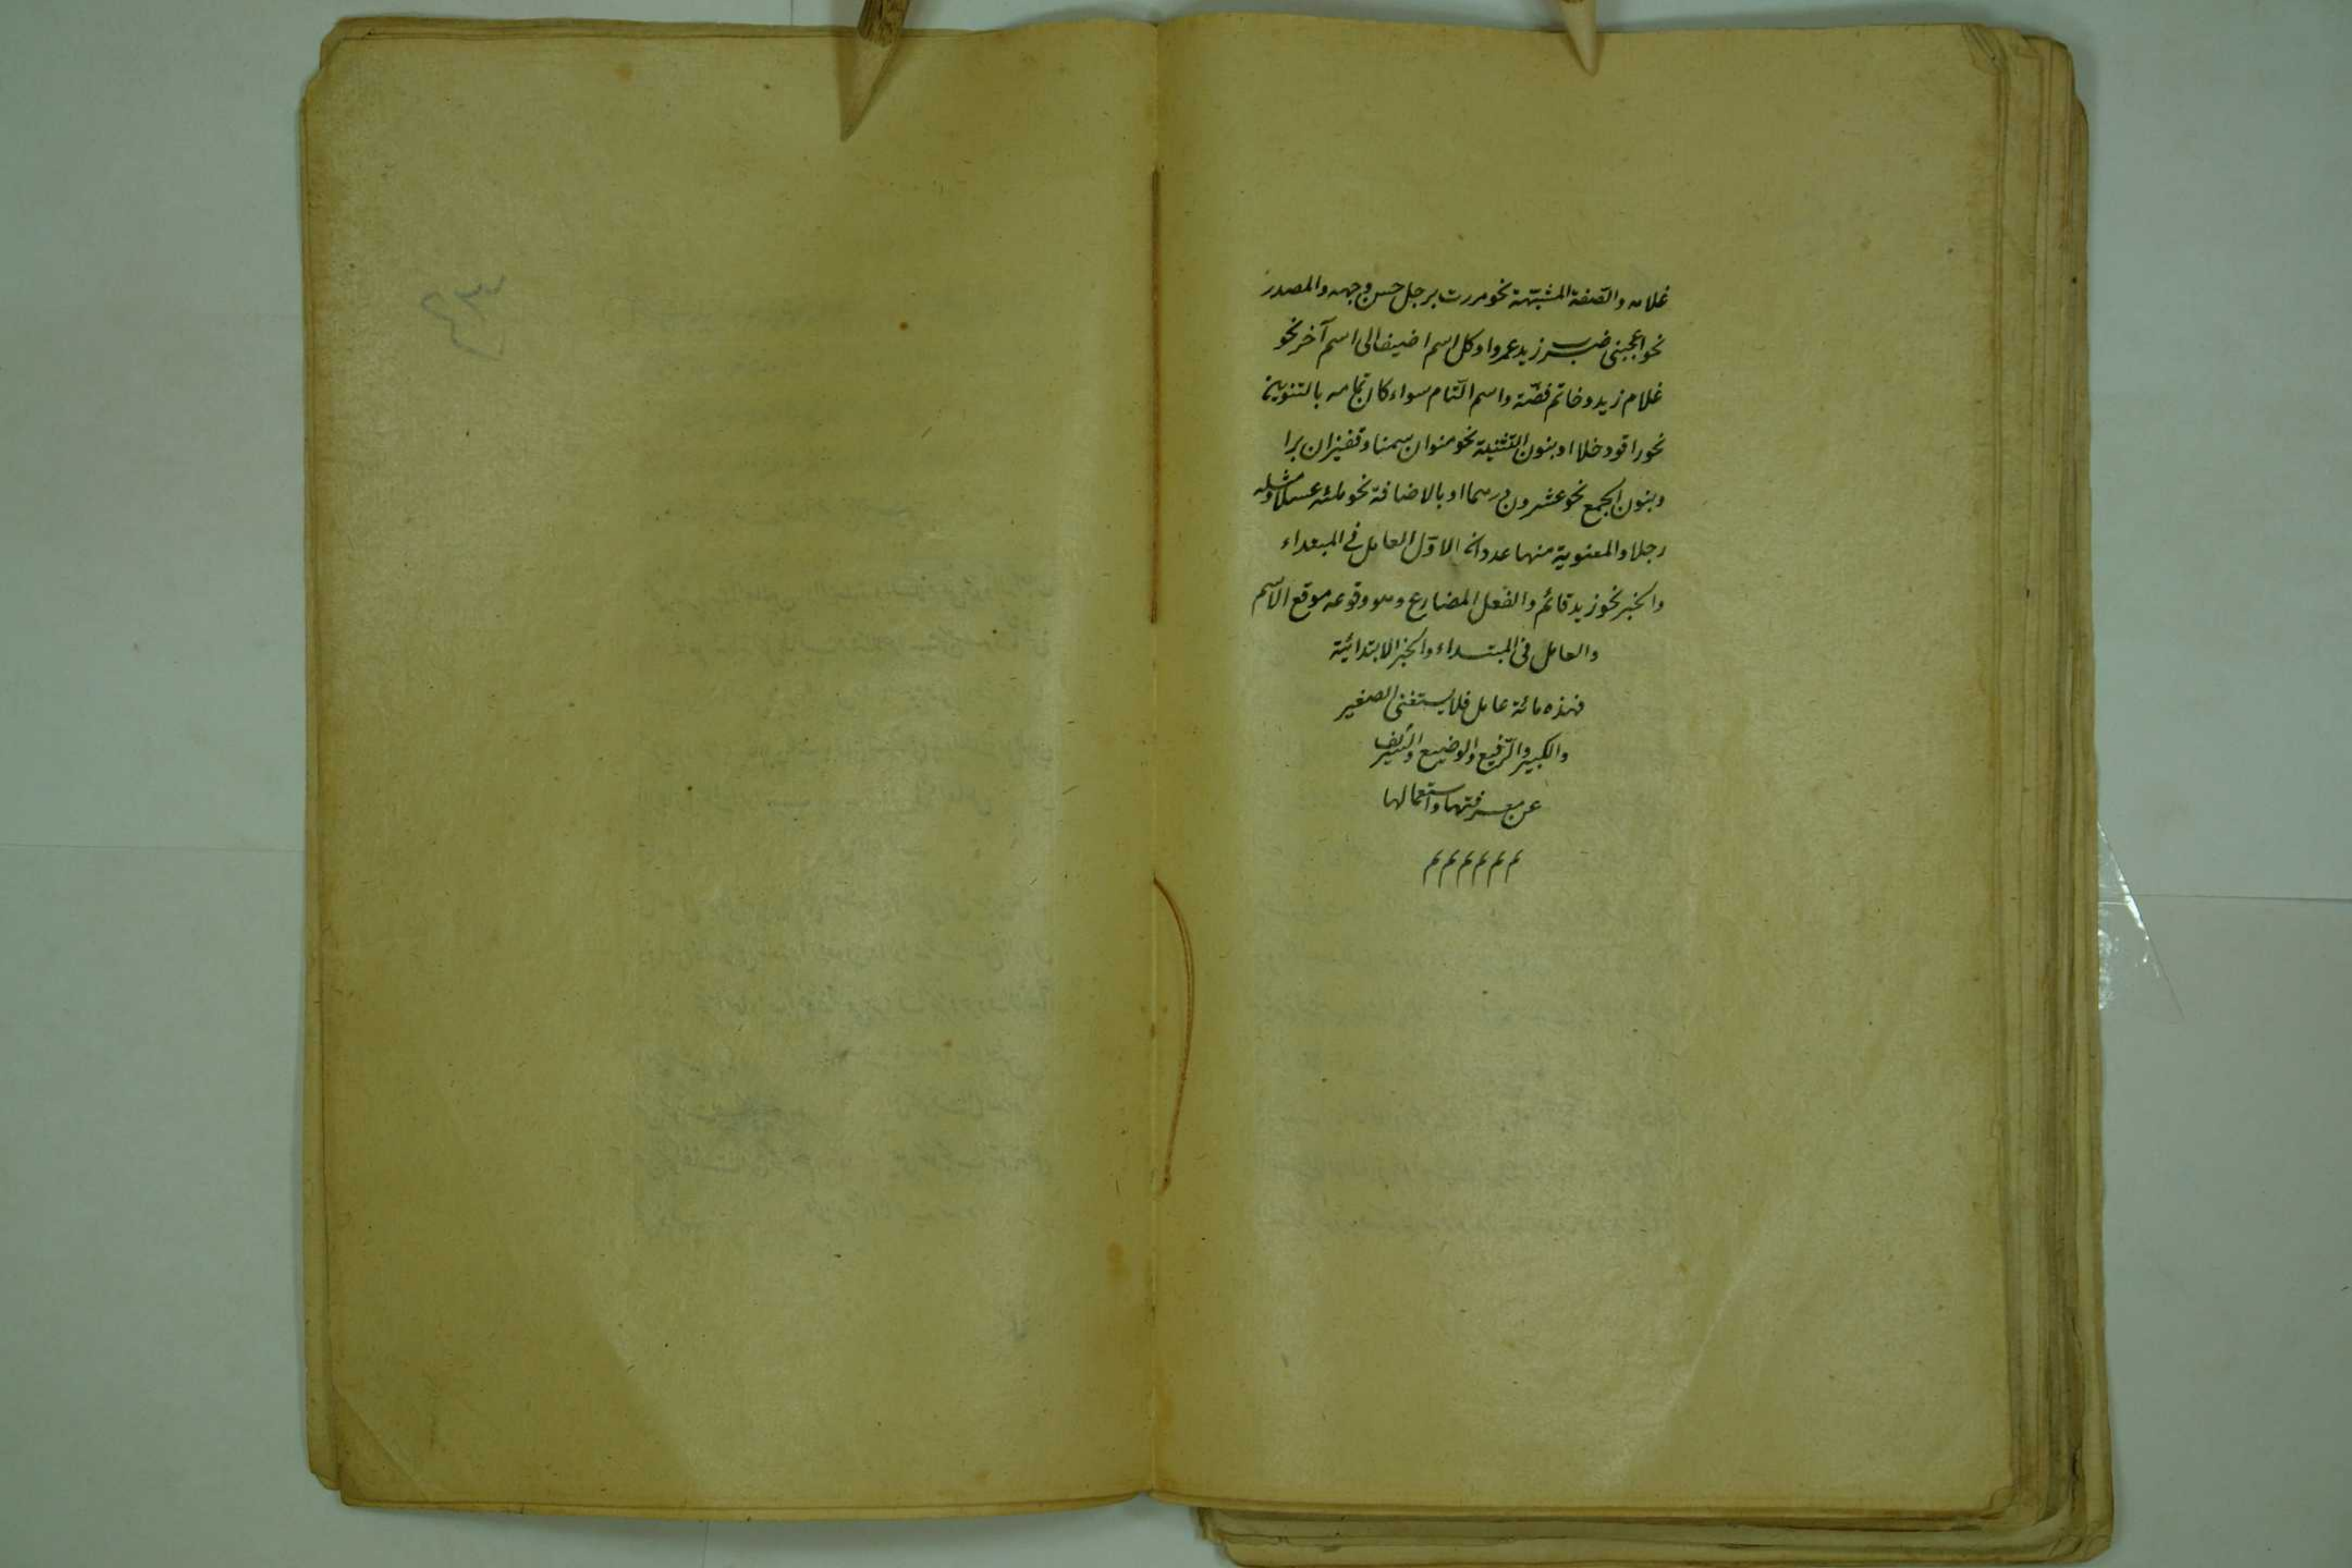 غلامه والصّفة المشبّهة نحو مررت برجل حسن وجهه والمصدر
نحو اعجبنى ضرب زيد عمروا وكل اسم اضيف الى اسم آخر نحو
غلام زيد وخاتم فضّة واسم التّام سواء كان تمامه بالتنوين
نحو راقود خلا او بنون التّثنية نحو منوان سمنا وقفيزان برا
وبنون الجمع نحو عشرون درهما او بالاضافة نحو ملئه عسلا ومثله
رجلا والمعنوية منها عددان الاوّل العامل فى المبتداء
والخبر نحو زيد قائم والفعل المضارع وهو وقوعه موقع الاسم
والعامل فى المبتداء والخبر الابتدائيّة
فهذه مائة عامل فلا يستغنى الصغير
والكبير والرّفيع والوضيع والشّريف
عن معرفتها واستعمالها
م م م م م م